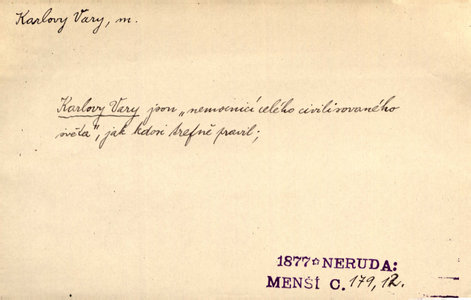 Karlovy Vary, m.
Karlovy Vary jsou „nemocnicí celého civilisovaného
světa", jak kdosi trefně pravil;
1877 NERUDA:
MENŠÍ C. 179, 12.